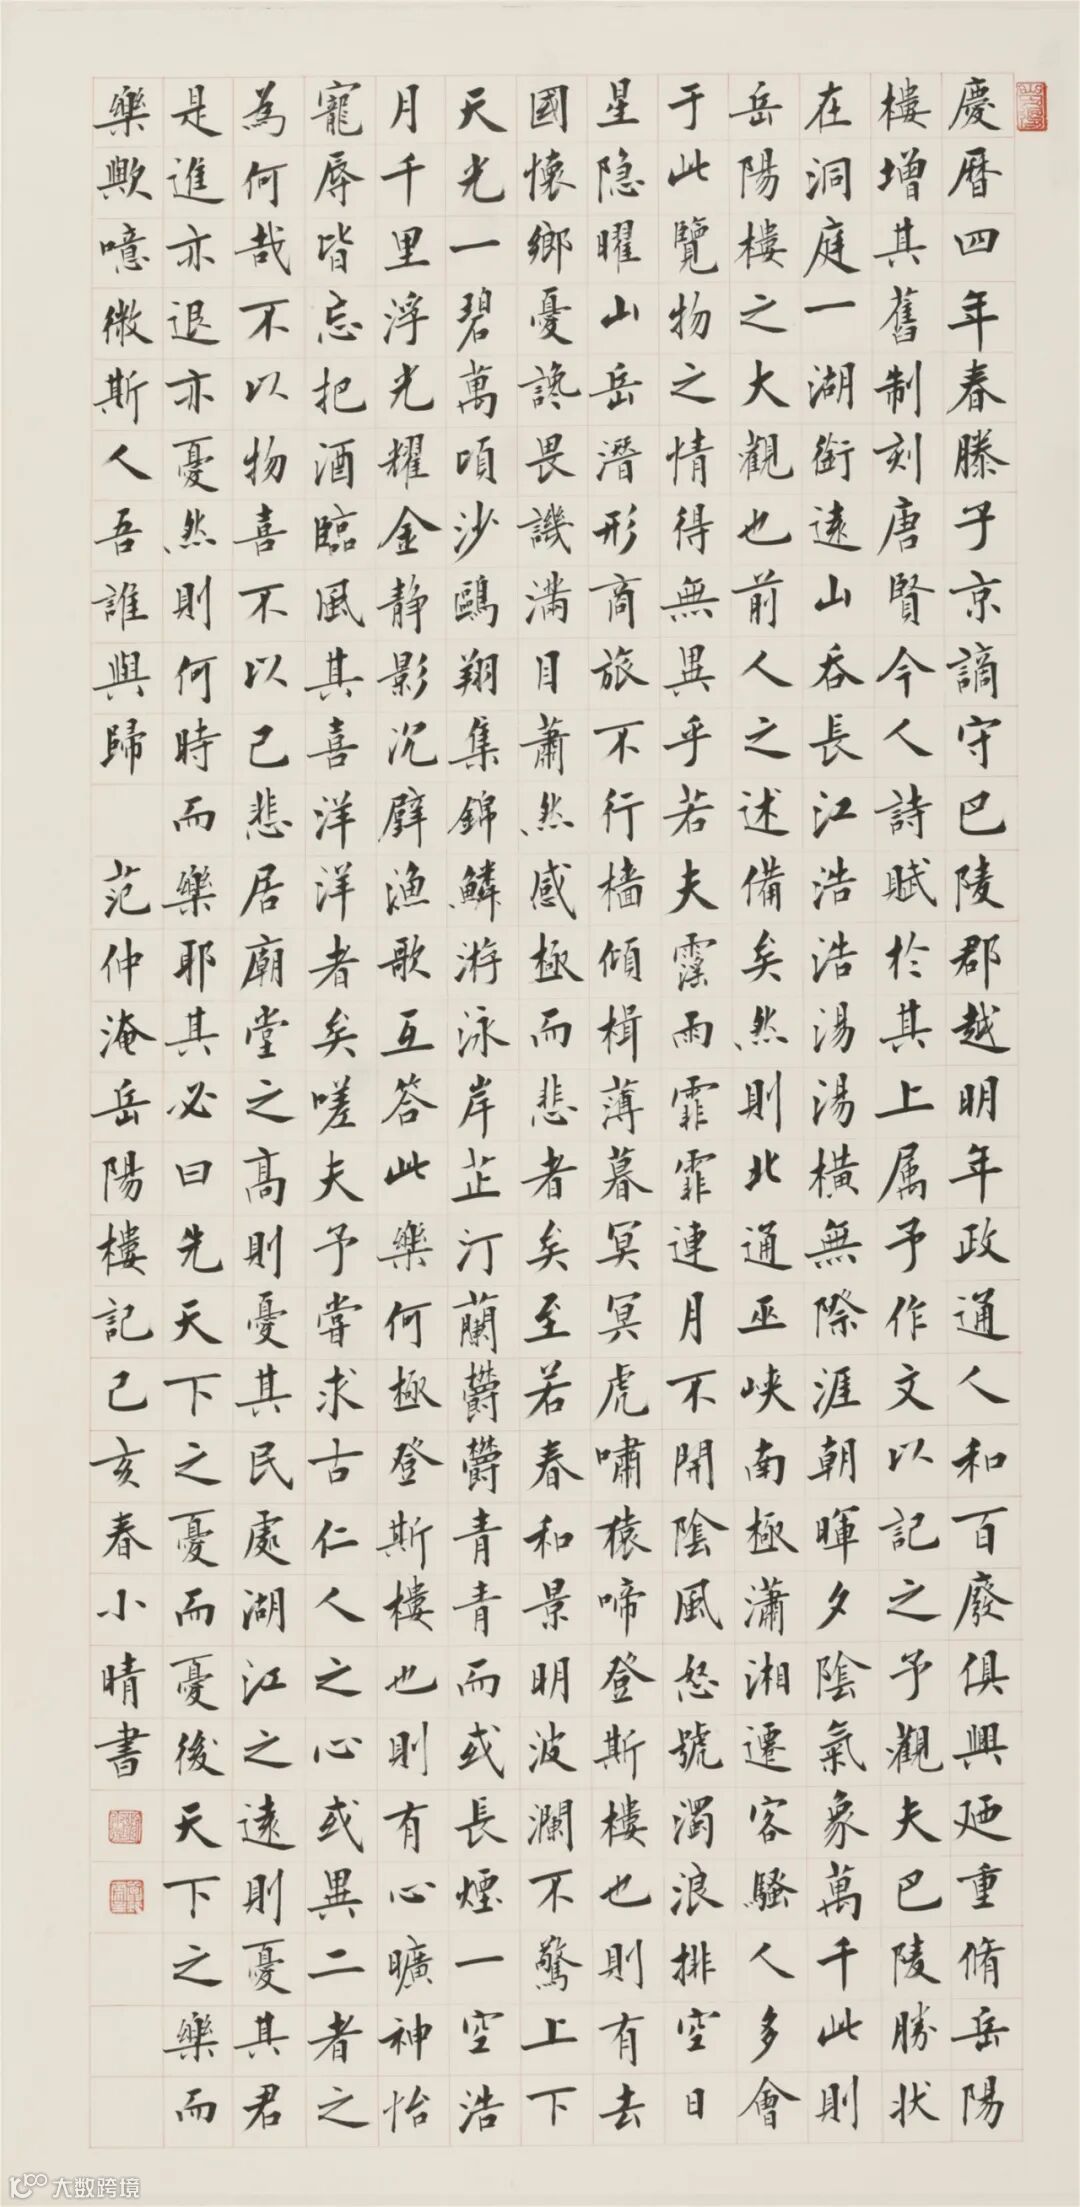 慶暦四年春滕子京謫守巴陵郡越明年政通人和百廢俱興廼重脩岳陽
樓增其舊制刻唐賢今人詩賦於其上属予作文以記之予觀夫巴陵勝狀
在洞庭一湖銜遠山吞長江浩浩湯湯橫無際涯朝暉夕陰氣象萬千此則
岳陽樓之大觀也前人之述備矣然則北通巫峽南極瀟湘遷客騷人多會
于此覽物之情得無異乎若夫霪雨霏霏連月不開陰風怒號濁浪排空日
星隐曜山岳潛形商旅不行檣傾楫薄暮冥冥虎嘯猿啼登斯樓也則有去
國懷鄉憂讒畏譏滿目蕭然感極而悲者矣至若春和景明波瀾不驚上下
天光一碧萬頃沙鷗翔集錦鱗游泳岸芷汀蘭鬱鬱青青而或長煙一空浩
月千里浮光耀金静影沉璧漁歌互答此樂何極登斯樓也則有心曠神怡
寵辱皆忘把酒臨風其喜洋洋者矣嗟夫予嘗求古仁人之心或異二者之
為何哉不以物喜不以己悲居廟堂之高則憂其民處湖江之遠則憂其君
是進亦退亦憂然則何時而樂耶其必曰先天下之憂而憂後天下之樂而
樂歟噫微斯人吾誰與歸 范仲淹岳陽樓記己亥春小晴書
大数跨境